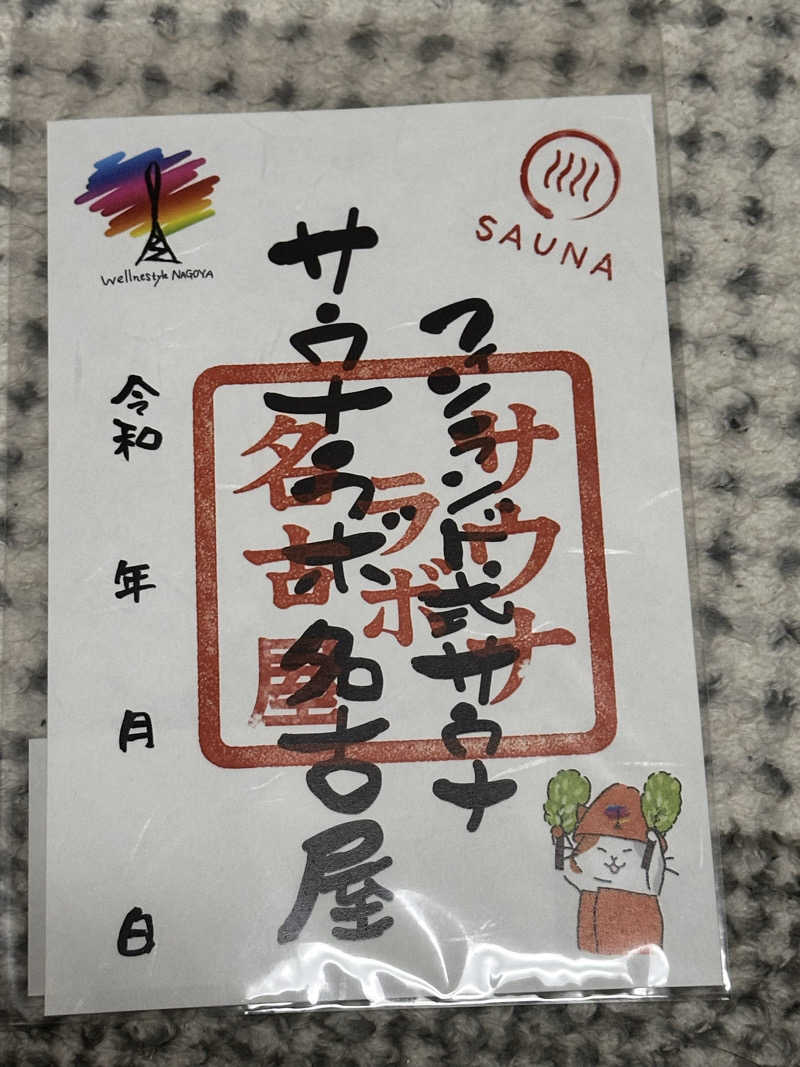 Wellnestyle NAGOYA
SAUNA
フィンランド式サウナ
サウナラボ名古屋
サウナ
ラボ
名古屋
令和
年
月
日